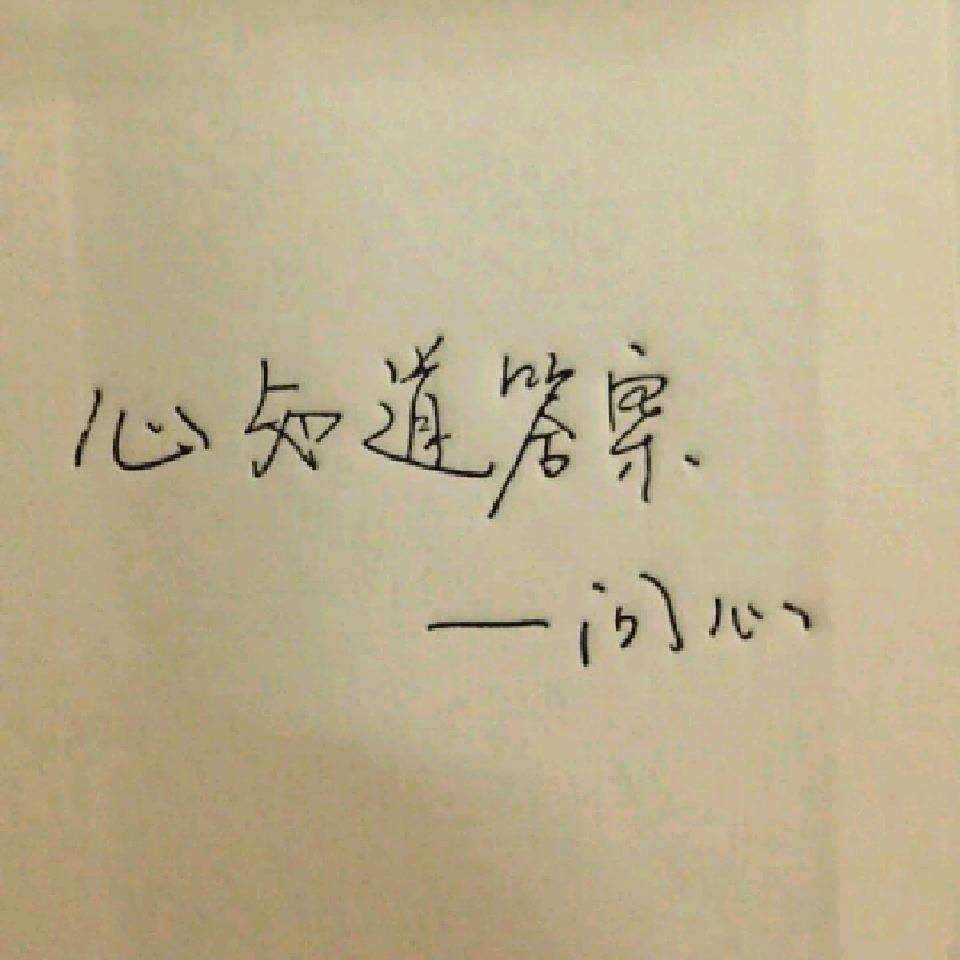 心知道答案.
—问心